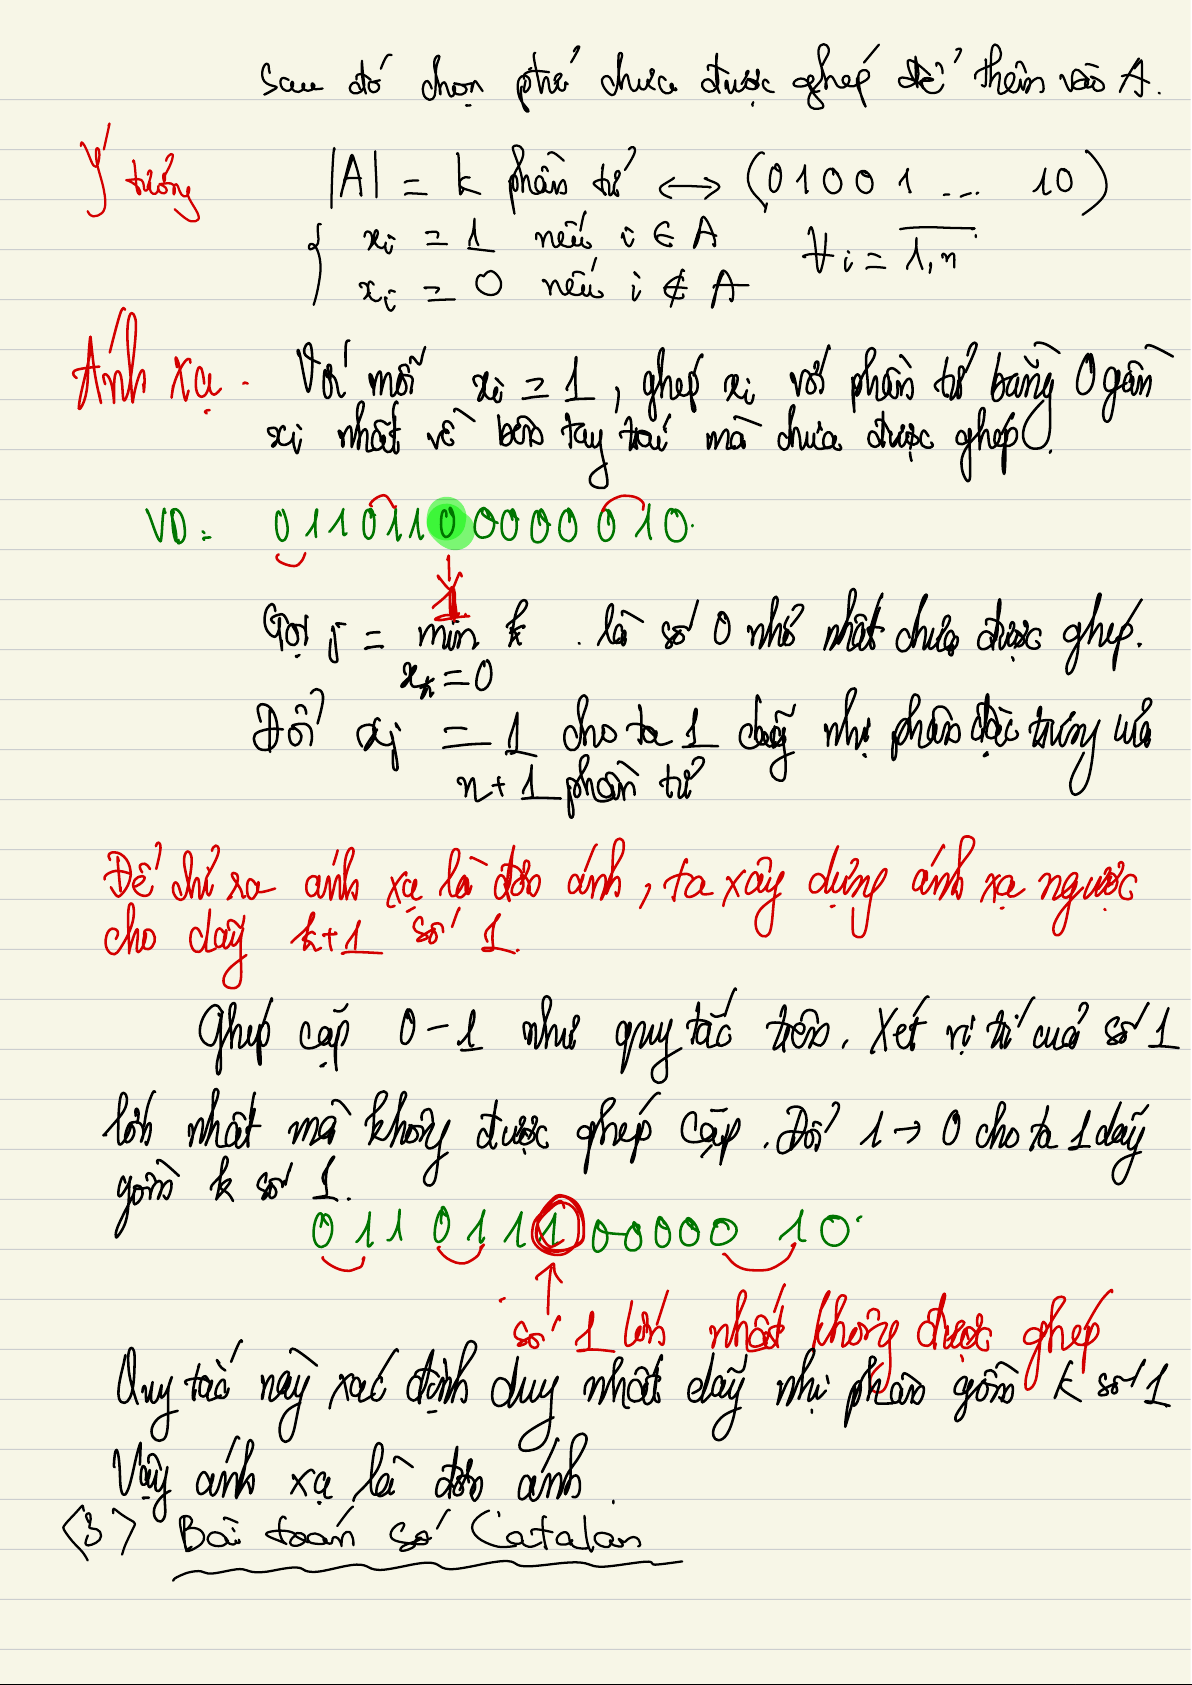 Sau đó chọn ptử chưa được ghép để thêm vào A.
Ý tưởng |A| = k phần tử ↔ (01001 ... 10)
{ xi = 1 nếu i ∈ A ∀i = 1,n
xi = 0 nếu i ∉ A
Ánh xạ. Với mỗi xi = 1, ghép xi với phần tử bằng 0 gần
xi nhất về bên tay trái mà chưa được ghép.
VD: 011011000000010.
↓
1
Gọi j = min k . là số 0 nhỏ nhất chưa được ghép.
xk = 0
Đổi xj = 1 cho ta 1 dãy nhị phân đặc trưng của
n+1 phần tử
Để chỉ ra ánh xạ là đơn ánh, ta xây dựng ánh xạ ngược
cho dãy k+1 số 1.
Ghép cặp 0-1 như quy tắc trên. Xét vị trí của số 1
lớn nhất mà không được ghép cặp. Đổi 1 → 0 cho ta 1 dãy
gồm k số 1.
011011100000 10.
↑
số 1 lớn nhất không được ghép
Quy tắc này xác định duy nhất dãy nhị phân gồm k số 1
Vậy ánh xạ là đơn ánh.
<3> Bài toán số Catalan